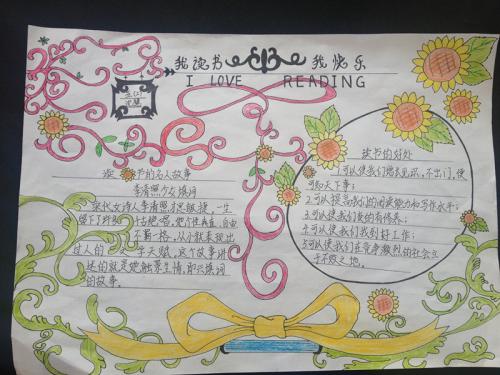 我读书 我快乐
I LOVE READING
读 书的名人故事
李清照少女填词
宋代女诗人李清照才思敏捷,一生
留下了许多千古绝唱,她个性率直、自由
独霸一格,从小就表现出
过人的 学天赋,这个故事讲
述的就是她触景生情,即兴填词
的故事。
读书的好处
1.可以使我们增长见识,不出门,便
可知天下事;
2.可以提高我们的阅读能力和写作水平;
3.可以使我们变的有修养;
4.可以使我们找到好工作;
5.可以使我们在竞争激烈的社会立
于不败之地。